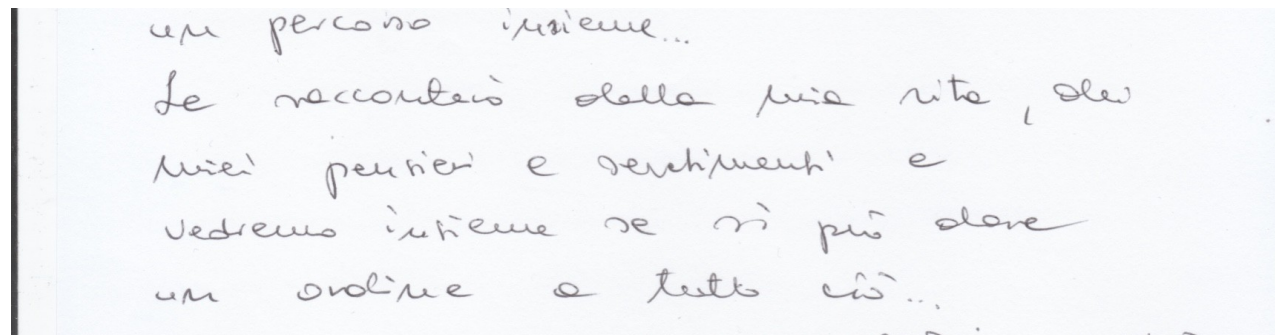 un percorso insieme...
Le racconterò della mia vita, dei
miei pensieri e sentimenti e
vedremo insieme se si può dare
un ordine a tutto ciò...